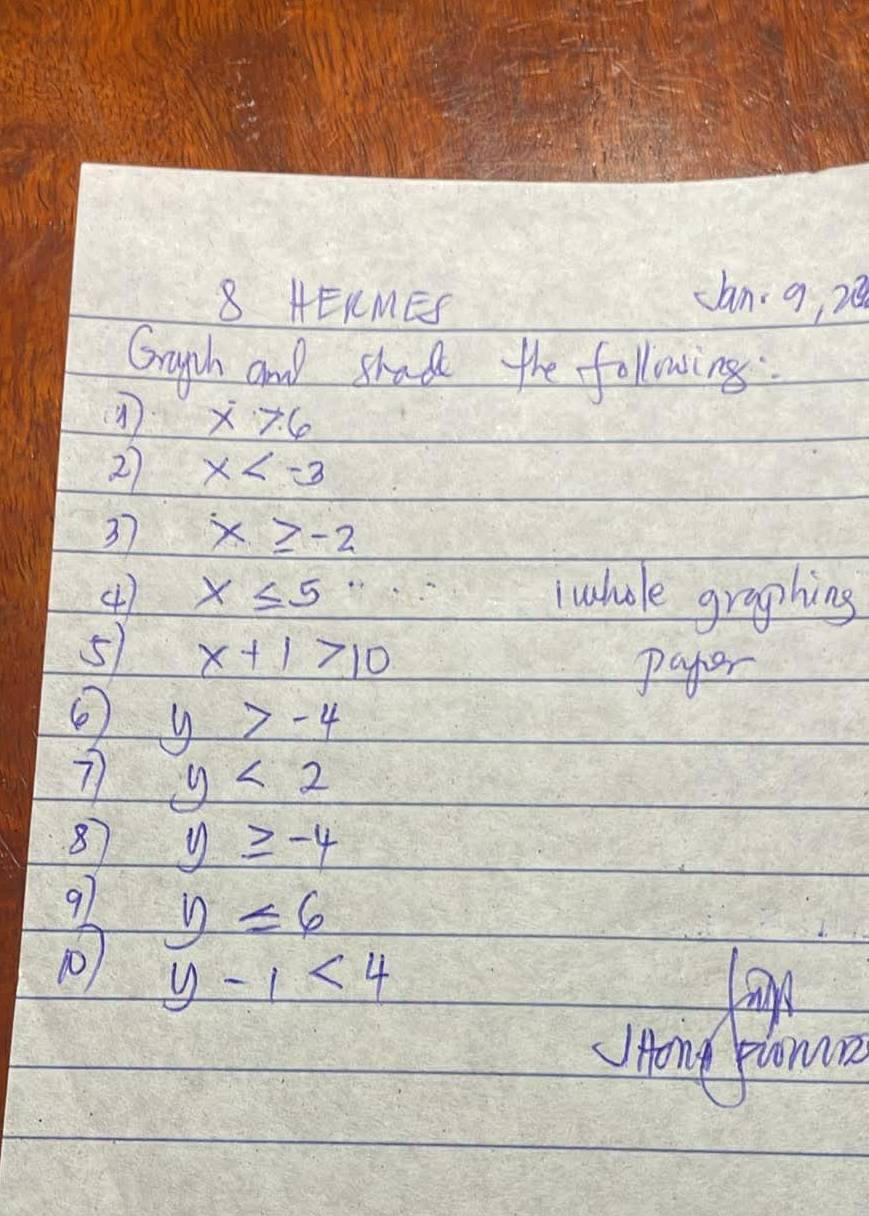 8 HERMES Jan. 9, 20
Graph and shade the following:
1) x > 6
2) x < -3
3) x ≥ -2
4) x ≤ 5 1 whole graphing
5) x + 1 > 10 paper
6) y > -4
7) y < 2
8) y ≥ -4
9) y ≤ 6
10) y - 1 < 4
JHong